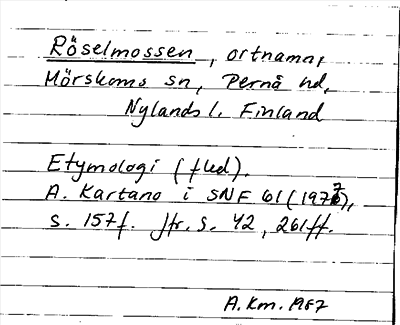 Röselmossen, ortnamn,
Mörskoms sn, Pernå hd,
Nylands l. Finland
Etymologi (fled).
A. Kartano i SNF 61 (1977),
s. 157f. Jfr. s. 42, 261ff.
A.Km. 1987